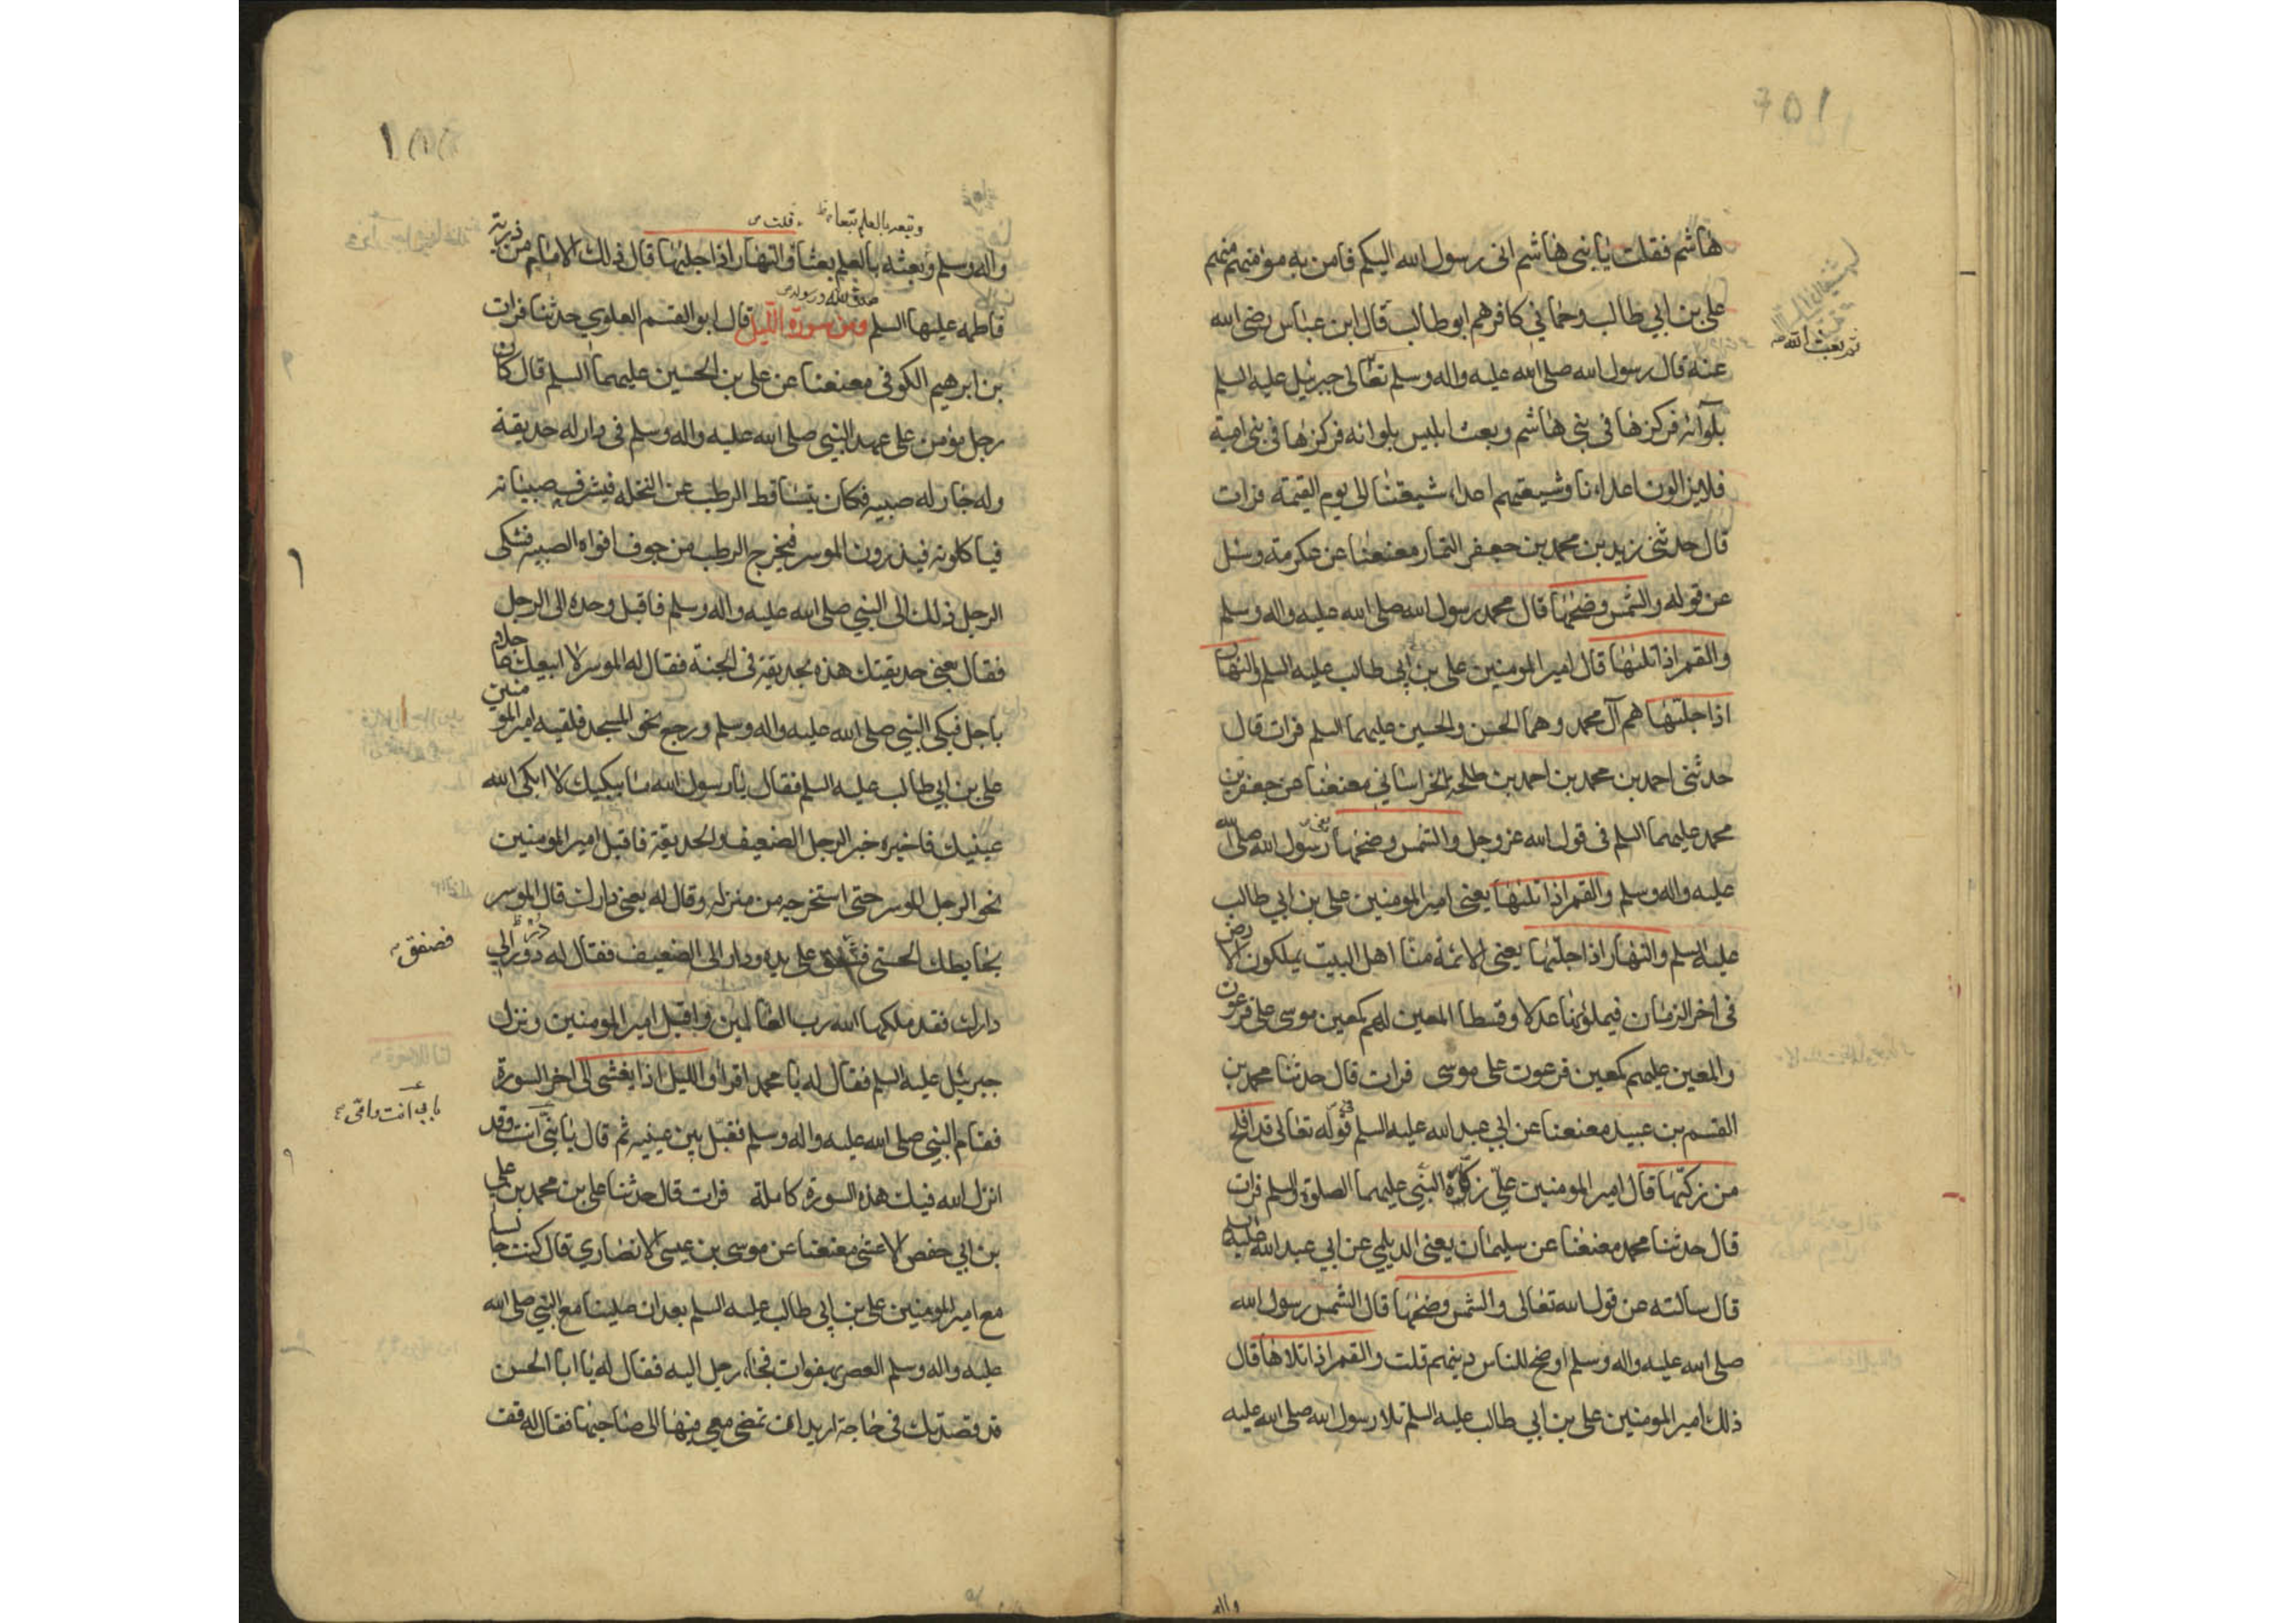 هاشم فقلت يا بنى هاشم انى رسول الله اليكم فامن به مؤمنهم منهم
على بن ابي طالب وحماني كافرهم ابو طالب قال ابن عباس رضى الله
ثم بعث الله
عنه قال رسول الله صلى الله عليه واله وسلم تعالى جبرئيل عليه السلم
بلوائه فركزها في بنى هاشم وبعث ابليس بلوائه فركزها في بنى امية
فلا يزالون اعداءنا وشيعتهم اعداء شيعتنا الى يوم القيمة فرات
قال حدثنى زيد بن محمد بن جعفر التمار معنعنا عن عكرمة وسئل
عن قوله والشمس وضحيها قال محمد رسول الله صلى الله عليه واله وسلم
والقمر اذا تليها قال امير المومنين على بن ابى طالب عليه السلم والنهار
اذا جليها هم آل محمد وهما الحسن والحسين عليهما السلم فرات قال
حدثنى احمد بن محمد بن احمد بن طلحة الخراسانى معنعنا عن جعفر بن
محمد عليهما السلم فى قول الله عز وجل والشمس وضحيها يعنى رسول الله صلى الله
عليه واله وسلم والقمر اذا تليها يعنى امير المومنين على بن ابى طالب
عليه السلم والنهار اذا جليها يعنى الائمة منا اهل البيت يملكون الارض
فى اخر الزمان فيملؤنها عدلا وقسطا المعين لهم كمعين موسى على فرعون
والمعين عليهم كمعين فرعون على موسى فرات قال حدثنا محمد بن
القسم بن عبيد معنعنا عن ابي عبد الله عليه السلم فى قوله تعالى قد افلح
من زكيها قال امير المومنين على زكاه النبى عليهما الصلوة والسلم فرات
قال حدثنا محمد معنعنا عن سليمان يعنى الديلمي عن ابى عبد الله عليه السلم
قال سالته عن قول الله تعالى والشمس وضحيها قال الشمس رسول الله
صلى الله عليه واله وسلم اوضح للناس دينهم قلت والقمر اذا تلاها قال
ذلك امير المومنين على بن ابي طالب عليه السلم تلا رسول الله صلى الله عليه
ونبعه بالعلم تبعا قلت
واله وسلم وبعثه بالعلم بعثا والنهار اذا جليها قال ذلك الامام من ذرية
صدق الله ورسوله
فاطمه عليها السلم ومن سورة الليل قال ابو القسم العلوي حدثنا فرات
بن ابرهيم الكوفى معنعنا عن على بن الحسين عليهما السلم قال كان
رجل مؤمن على عهد النبي صلى الله عليه واله وسلم فى دار له حديقة
وله جار له صبيه فكان يتساقط الرطب عن النخله فيشرف صبيانه
فياكلونه فيذرون الموسر فيخرج الرطب من جوف افواه الصبيه فشكى
الرجل ذلك الى النبي صلى الله عليه واله وسلم فاقبل وحده الى الرجل
فقال بعنى حديقتك هذه بحديقة فى الجنة فقال له الموسر لا ابيعك عاجلا
باجل فبكى النبي صلى الله عليه واله وسلم ورجع نحو المسجد فلقيه امير المومنين
على بن ابي طالب عليه السلم فقال يا رسول الله ما يبكيك لا ابكى الله
عينيك فاخبره خبر الرجل الضعيف والحديقة فاقبل امير المومنين
نحو الرجل الموسر حتى استخرجه من منزله وقال له بعنى دارك قال الموسر
بحايطك الحسنى فصفق على يده ودار الى الضعيف فقال له در الى
فصفق
دارك فقد ملكها الله رب العالمين واقبل امير المومنين ونزل
جبرئيل عليه السلم فقال له يا محمد اقرا والليل اذا يغشى الى اخر السورة
فقام النبي صلى الله عليه واله وسلم فقبل بين عينيه ثم قال يا بنى انت وقد
بابى انت وامى
انزل الله فيك هذه السورة كاملة فرات قال حدثنا على بن محمد بن على
بن ابى حفص الاعشى معنعنا عن موسى بن عيسى الانصاري قال كنت جالسا
مع امير المومنين على بن ابى طالب عليه السلم بعد ان صلينا مع النبي صلى الله
عليه واله وسلم العصر بهفوات فجاء رجل اليه فقال له يا ابا الحسن
قد قصدتك فى حاجة اريد ان تمضى معى فيها الى صاحبها فقال له قف